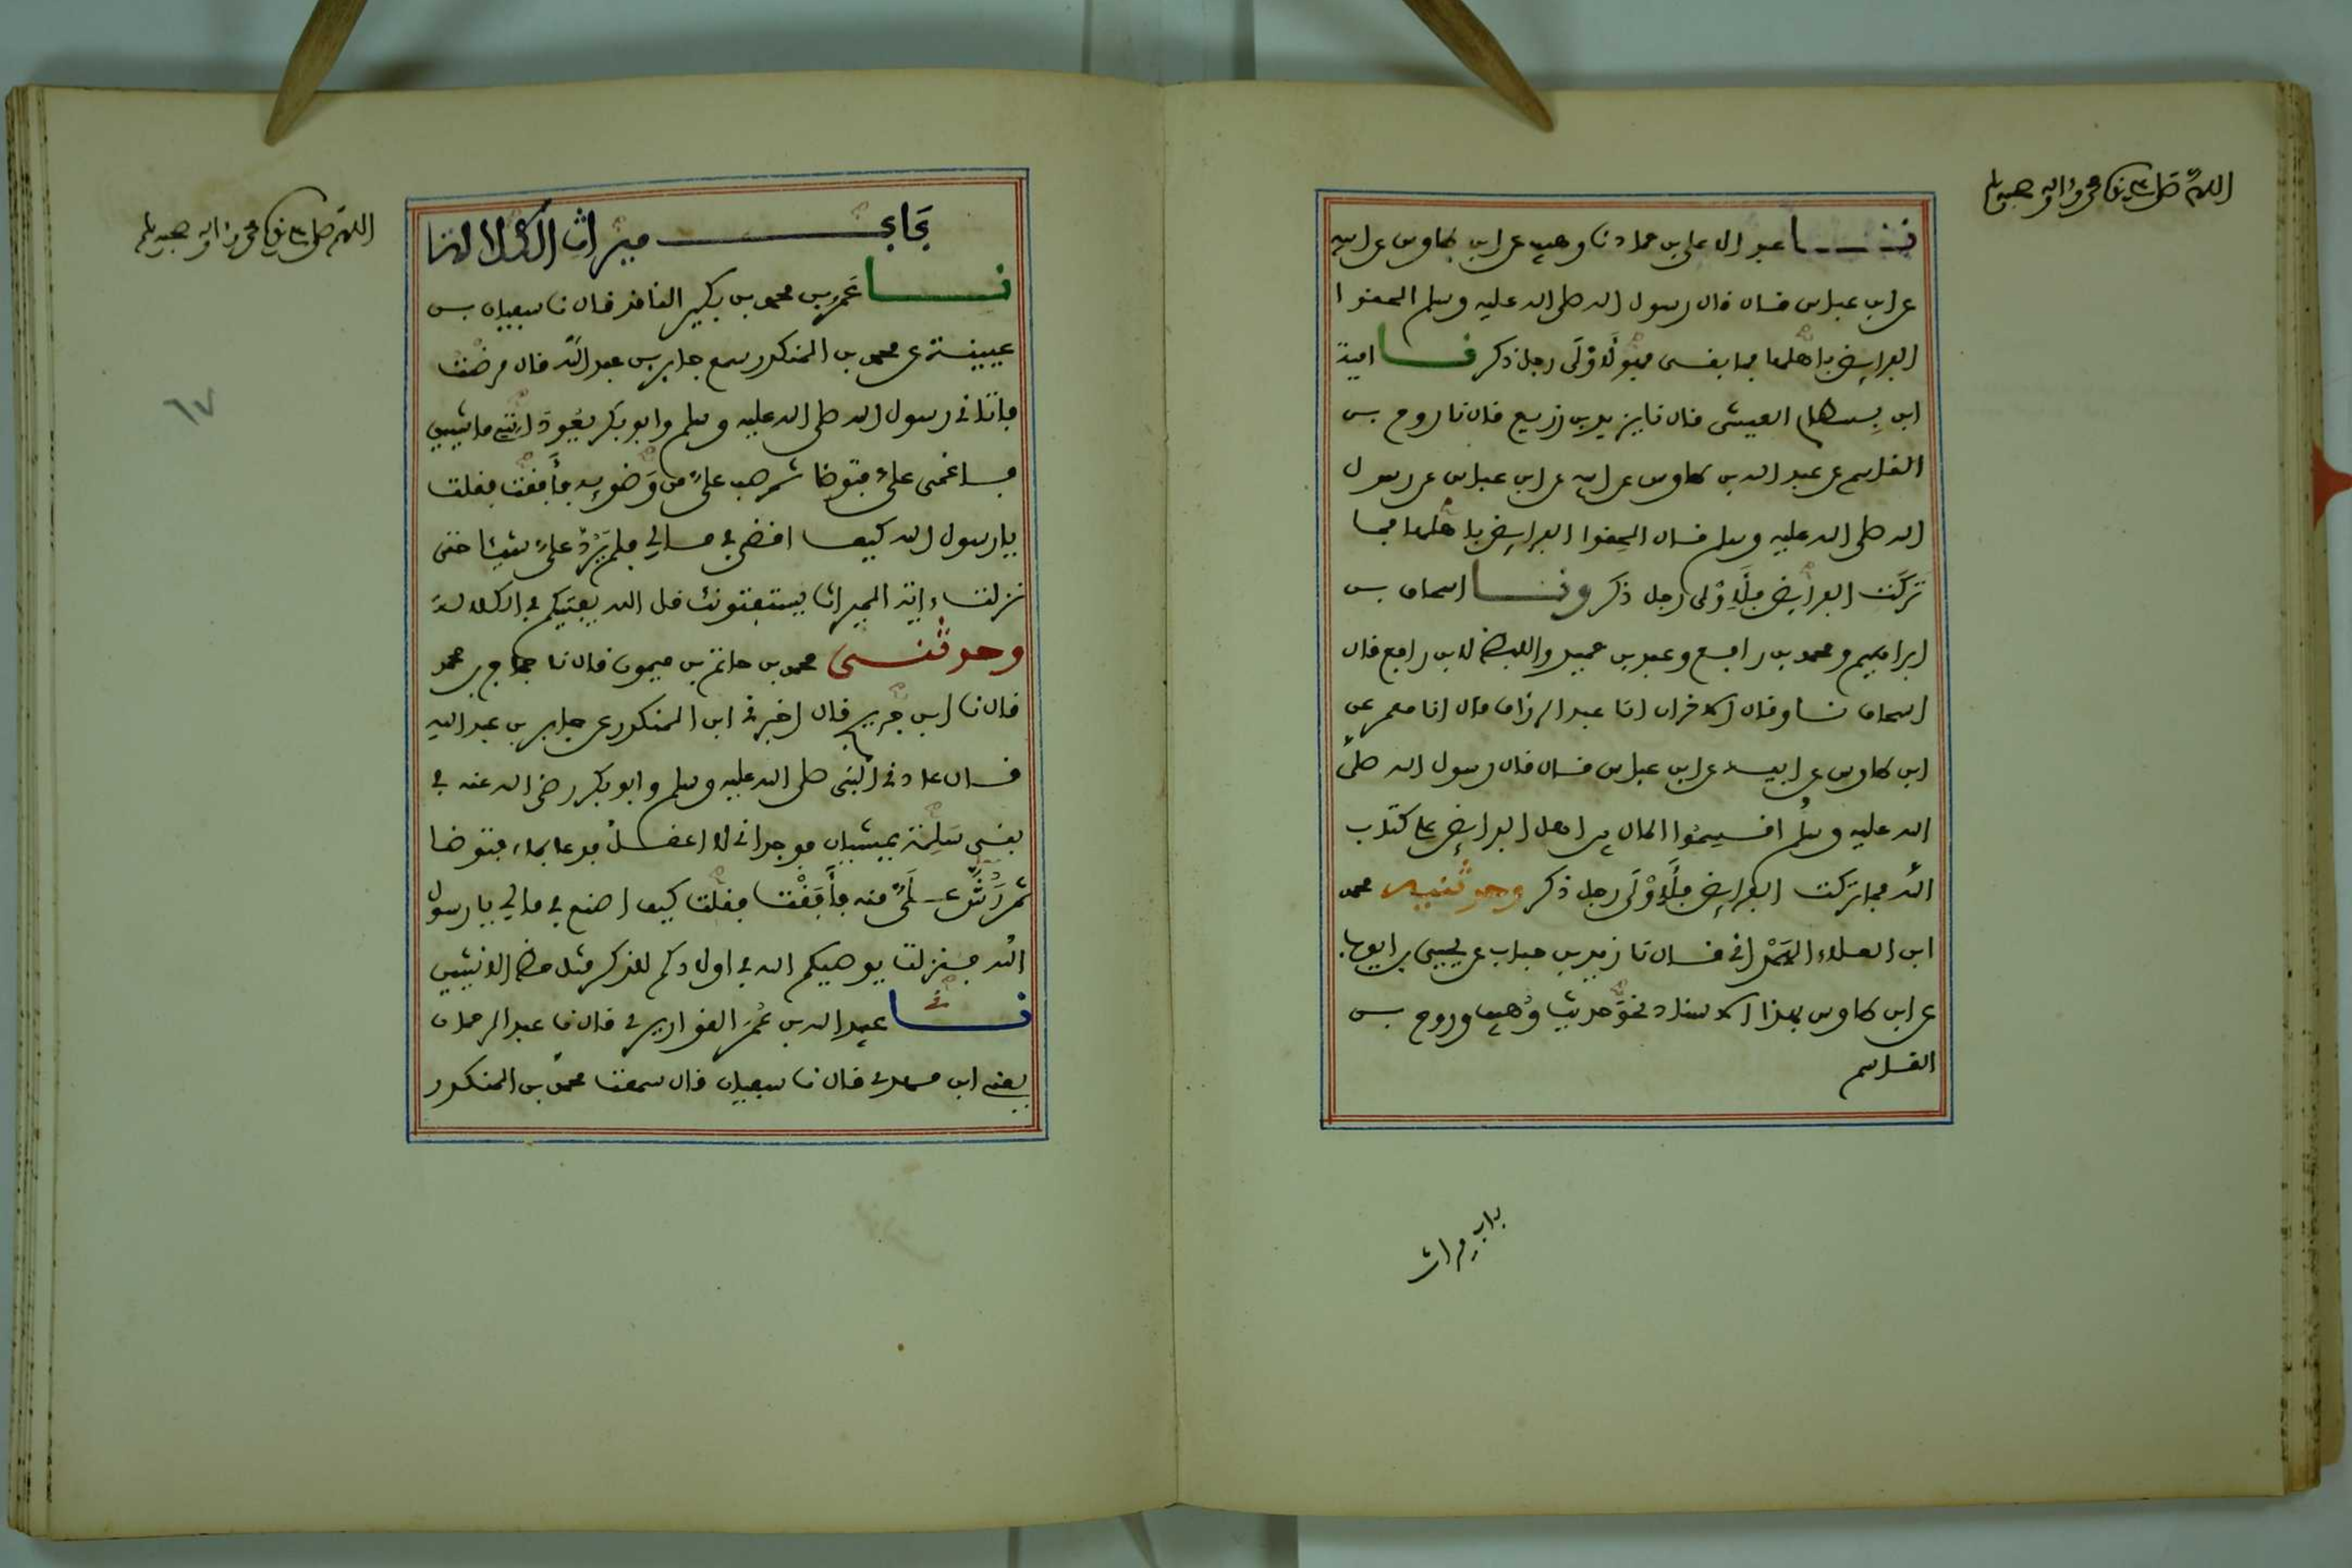 اللهم صل على سيدنا محمد وءاله وصحبه وسلم
نا عبد الاعلى بن حماد نا وهيب عن ابن طاوس عن ابيه
عن ابن عباس قال قال رسول الله صلى الله عليه وسلم الحقوا
الفرايض باهلها فما بقى فهو لاولى رجل ذكر نا امية
ابن بسطام العيشى قال نا يزيد بن زريع قال نا روح بن
القاسم عن عبد الله بن طاوس عن ابيه عن ابن عباس عن رسول
الله صلى الله عليه وسلم قال الحقوا الفرايض باهلها فما
تركت الفرايض فلاولى رجل ذكر ونا اسحاق بن
ابراهيم ومحمد بن رافع وعبد بن حميد واللفظ لابن رافع قال
اسحاق نا وقال الاخران انا عبد الرزاق قال انا معمر عن
ابن طاوس عن ابيه عن ابن عباس قال قال رسول الله صلى
الله عليه وسلم اقسموا المال بين اهل الفرايض على كتاب
الله فما تركت الفرايض فلاولى رجل ذكر وحدثنيه محمد
ابن العلاء الهمدانى قال نا زيد بن حباب عن يحيى بن ايوب
عن ابن طاوس بهذا الاسناد نحو حديث وهيب وروح بن
القاسم
باب ميراث
اللهم صل على سيدنا محمد وءاله وصحبه وسلم
باب ميراث الكلالة
نا عمرو بن محمد بن بكير الناقد قال نا سفيان بن
عيينة عن محمد بن المنكدر سمع جابر بن عبد الله قال مرضت
فاتانى رسول الله صلى الله عليه وسلم وابو بكر يعودانى ماشيين
فاغمى على فتوضا ثم صب على من وضوءه فافقت فقلت
يا رسول الله كيف اقضى فى مالى فلم يرد على شيئا حتى
نزلت ءاية الميراث يستفتونك قل الله يفتيكم فى الكلالة
وحدثنى محمد بن حاتم بن ميمون قال نا حجاج بن محمد
قال نا ابن جريج قال اخبرنى ابن المنكدر عن جابر بن عبد الله
قال عادنى النبى صلى الله عليه وسلم وابو بكر رضى الله عنه فى
بنى سلمة يمشيان فوجدانى لا اعقل فدعا بماء فتوضا
ثم رش على منه فافقت فقلت كيف اصنع فى مالى يا رسول
الله فنزلت يوصيكم الله فى اولادكم للذكر مثل حظ الانثيين
نا عبيد الله بن عمر القواريرى قال نا عبد الرحمان
يعنى ابن مهدى قال نا سفيان قال سمعت محمد بن المنكدر
٦٧